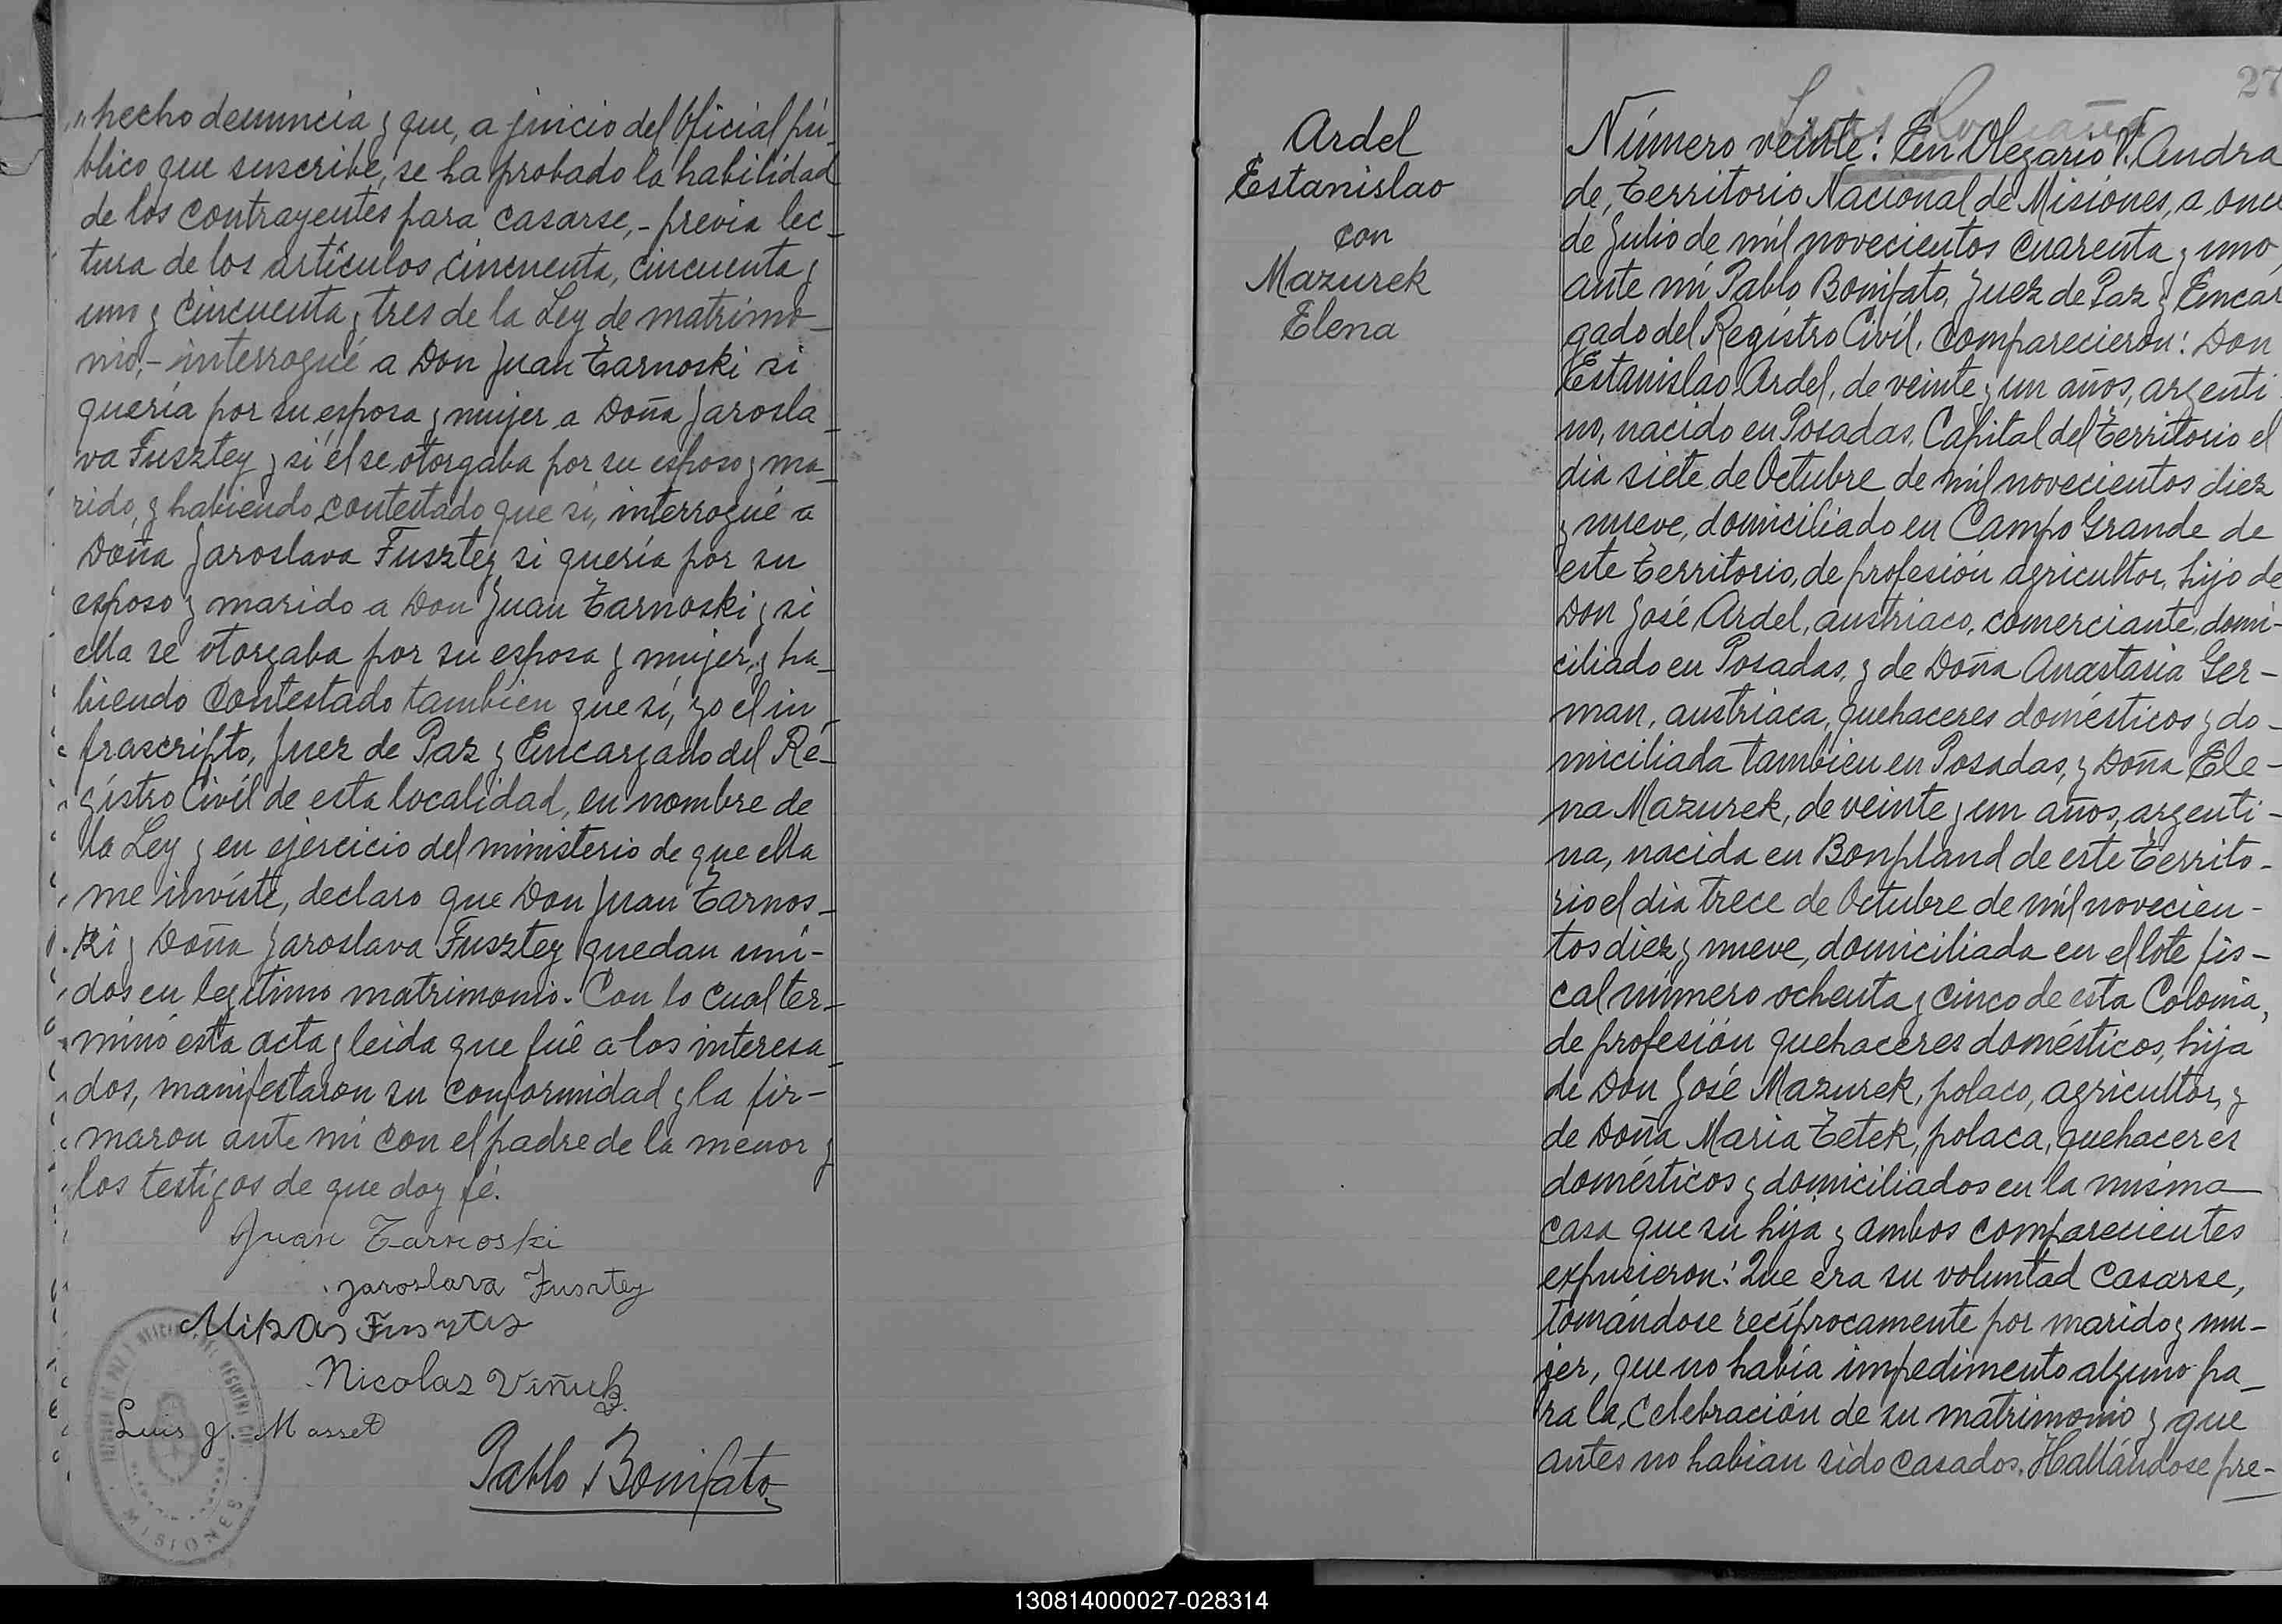 hecho denuncia y que, a juicio del Oficial pú-
blico que suscribe, se ha probado la habilidad
de los contrayentes para casarse,- previa lec-
tura de los artículos cincuenta, cincuenta y
uno y cincuenta y tres de la Ley de matrimo-
nio,- interrogué a Don Juan Tarnoski si
quería por su esposa y mujer a Doña Jarosla-
va Fusztey y si él se otorgaba por su esposo y ma-
rido, y habiendo contestado que si, interrogué a
Doña Jaroslava Fusztey si quería por su
esposo y marido a Don Juan Tarnoski y si
ella se otorgaba por su esposa y mujer, y ha-
biendo contestado también que sí, yo el in-
frascripto, Juez de Paz y Encargado del Re-
gistro Civíl de esta localidad, en nombre de
la Ley y en ejercicio del ministerio de que ella
me invíste, declaro que Don Juan Tarnos-
ki y Doña Jaroslava Fusztey quedan uni-
dos en legítimo matrimonio. Con lo cual ter-
minó esta acta y leida que fué a los interesa-
dos, manifestaron su conformidad y la fir-
maron ante mí con el padre de la menor y
los testigos de que doy fé.
Juan Tarnoski
Jaroslava Fusztey
Nicolas Viñuk
Luis J. Masset
Pablo Bonifato
MISIONES
27
Ardel
Estanislao
con
Mazurek
Elena
Número veinte: En Olegario V. Andra
de, Territorio Nacional de Misiones, a once
de Julio de mil novecientos cuarenta y uno,
ante mí Pablo Bonifato, Juez de Paz y Encar
gado del Registro Civíl, comparecieron: Don
Estanislao Ardel, de veinte y un años, argenti
no, nacido en Posadas, Capital del Territorio el
dia siete de Octubre de mil novecientos diez
y nueve, domiciliado en Campo Grande de
este Territorio, de profesión agricultor, hijo de
Don José Ardel, austriaco, comerciante, domi-
ciliado en Posadas, y de Doña Anastasia Ger-
man, austriaca, quehaceres domésticos y do-
miciliada tambien en Posadas, y Doña Ele-
na Mazurek, de veinte y un años, argenti-
na, nacida en Bonpland de este Territo-
rio el dia trece de Octubre de mil novecien-
tos diez y nueve, domiciliada en el lote fis-
cal número ochenta y cinco de esta Colonia,
de profesión quehaceres domésticos, hija
de Don José Mazurek, polaco, agricultor, y
de Doña Maria Tetek, polaca, quehaceres
domésticos y domiciliados en la misma
casa que su hija y ambos comparecientes
expusieron: Que era su voluntad casarse,
tomándose recíprocamente por marido y mu-
jer, que no había impedimento alguno pa-
ra la celebración de su matrimonio y que
antes no habian sido casados. Hallándose pre-
130814000027-028314